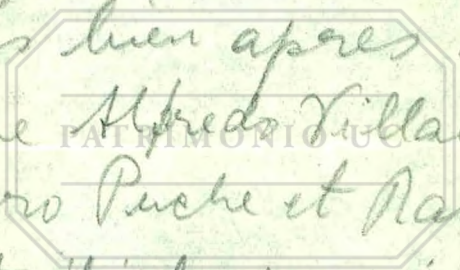 s bien apres
e Alfredo Villa
PATRIMONIO UC
ro Puche et Ra